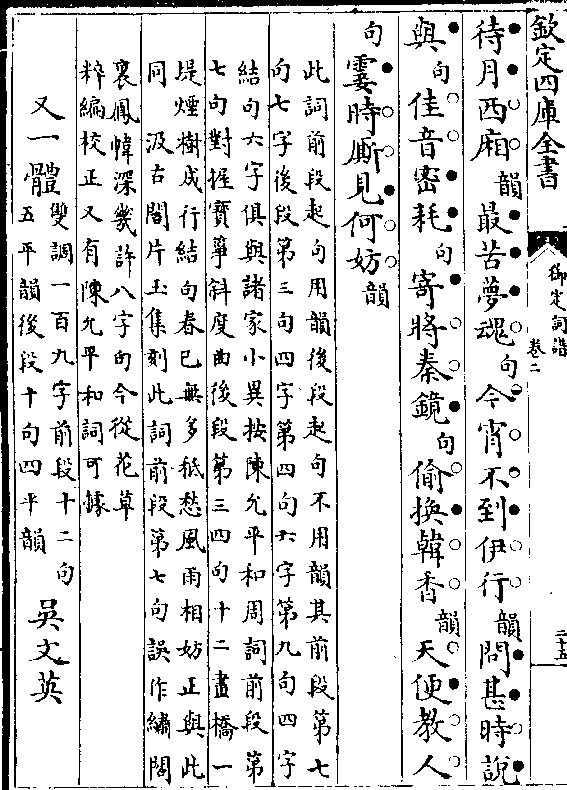 欽定四庫全書
御定詞譜
卷二
二十五
待月西廂韻最苦夢魂句今宵不到伊行韻問甚時說
與句佳音密耗句寄將秦鏡句偷換韓香韻天便教人
句霎時厮見何妨韻
此詞前段起句用韻後段起句不用韻其前段第七
句七字後段第三句四字第四句六字第九句四字
結句六字俱與諸家小異按陳允平和周詞前段第
七句對握寶箏斜度曲後段第三四句十二畫橋一
堤煙樹成行結句春已無多秪愁風雨相妨正與此
同汲古閣片玉集刻此詞前段第七句誤作繡閣
裏鳳幃深幾許八字句今從花草
粹編校正又有陳允平和詞可據
又一體雙調一百九字前段十二句
五平韻後段十句四平韻
吳文英